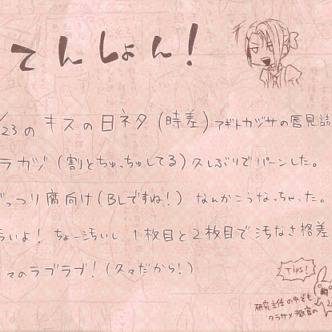 てんしょん!
/23の キスの日ネタ (時差) アギトカヅサの唇見詰
ラカヅ (割とちゅっちゅしてる) 久しぶりでパーンした。
がっつり腐向け (BLですね!) なんかこうなっちゃった。
ないよ! ちょー汚いし 1枚目と2枚目で汚なさ格差
々のラブラブ! (久々だから!)
Tips!
研究主任の
クラサメ